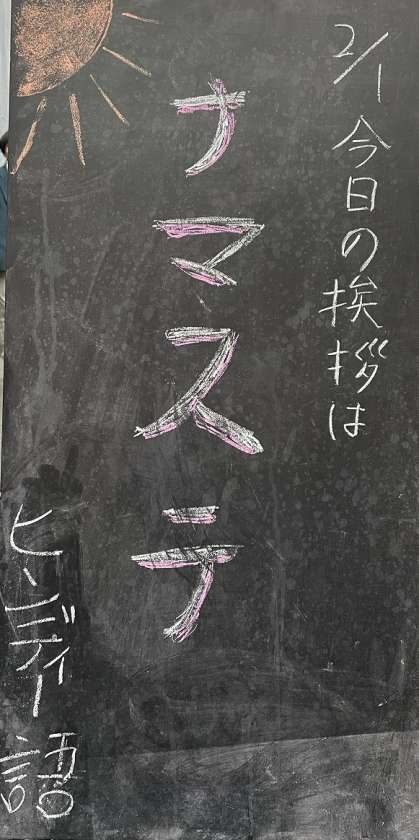 2/1 今日の挨拶は
ナマステ
ヒンディー語